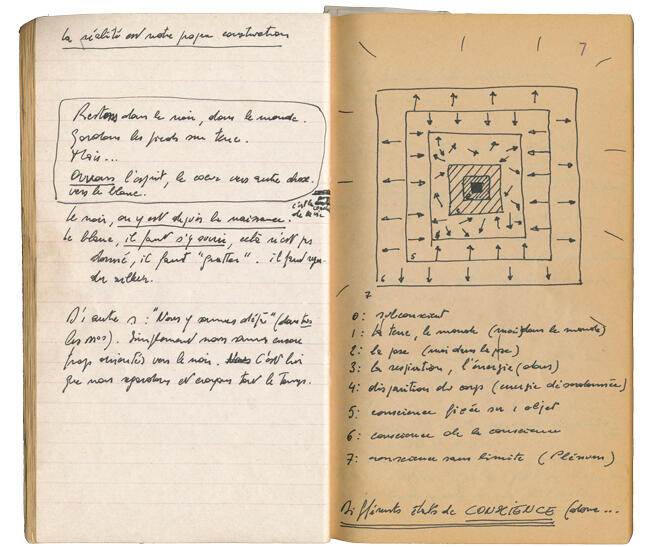 la réalité est notre propre construction
Restons dans le noir, dans le monde.
Gardons les pieds sur terre.
Mais...
Ouvrons l'esprit, le cœur vers autre chose.
vers le blanc.
c'est la
de la vie
le noir, on y est depuis la naissance.
le blanc, il faut s'y ouvrir, cela n'est pas
donné, il faut "gratter". il faut
D'autres : "Nous y sommes déjà" (dans
les 1000). Simplement nous sommes encore
trop orientés vers le noir. C'est lui
que nous regardons et croyons tout le temps.
7
5
6
7
0: subconscient
1: la terre, le monde (moi dans le monde)
2: la pose (moi dans la pose)
3: la respiration, l'énergie (dans)
4: disparition du corps (énergie désordonnée)
5: conscience fixée sur 1 objet
6: conscience de la conscience
7: conscience sans limite (Plénum)
Différents états de CONSCIENCE (donc...